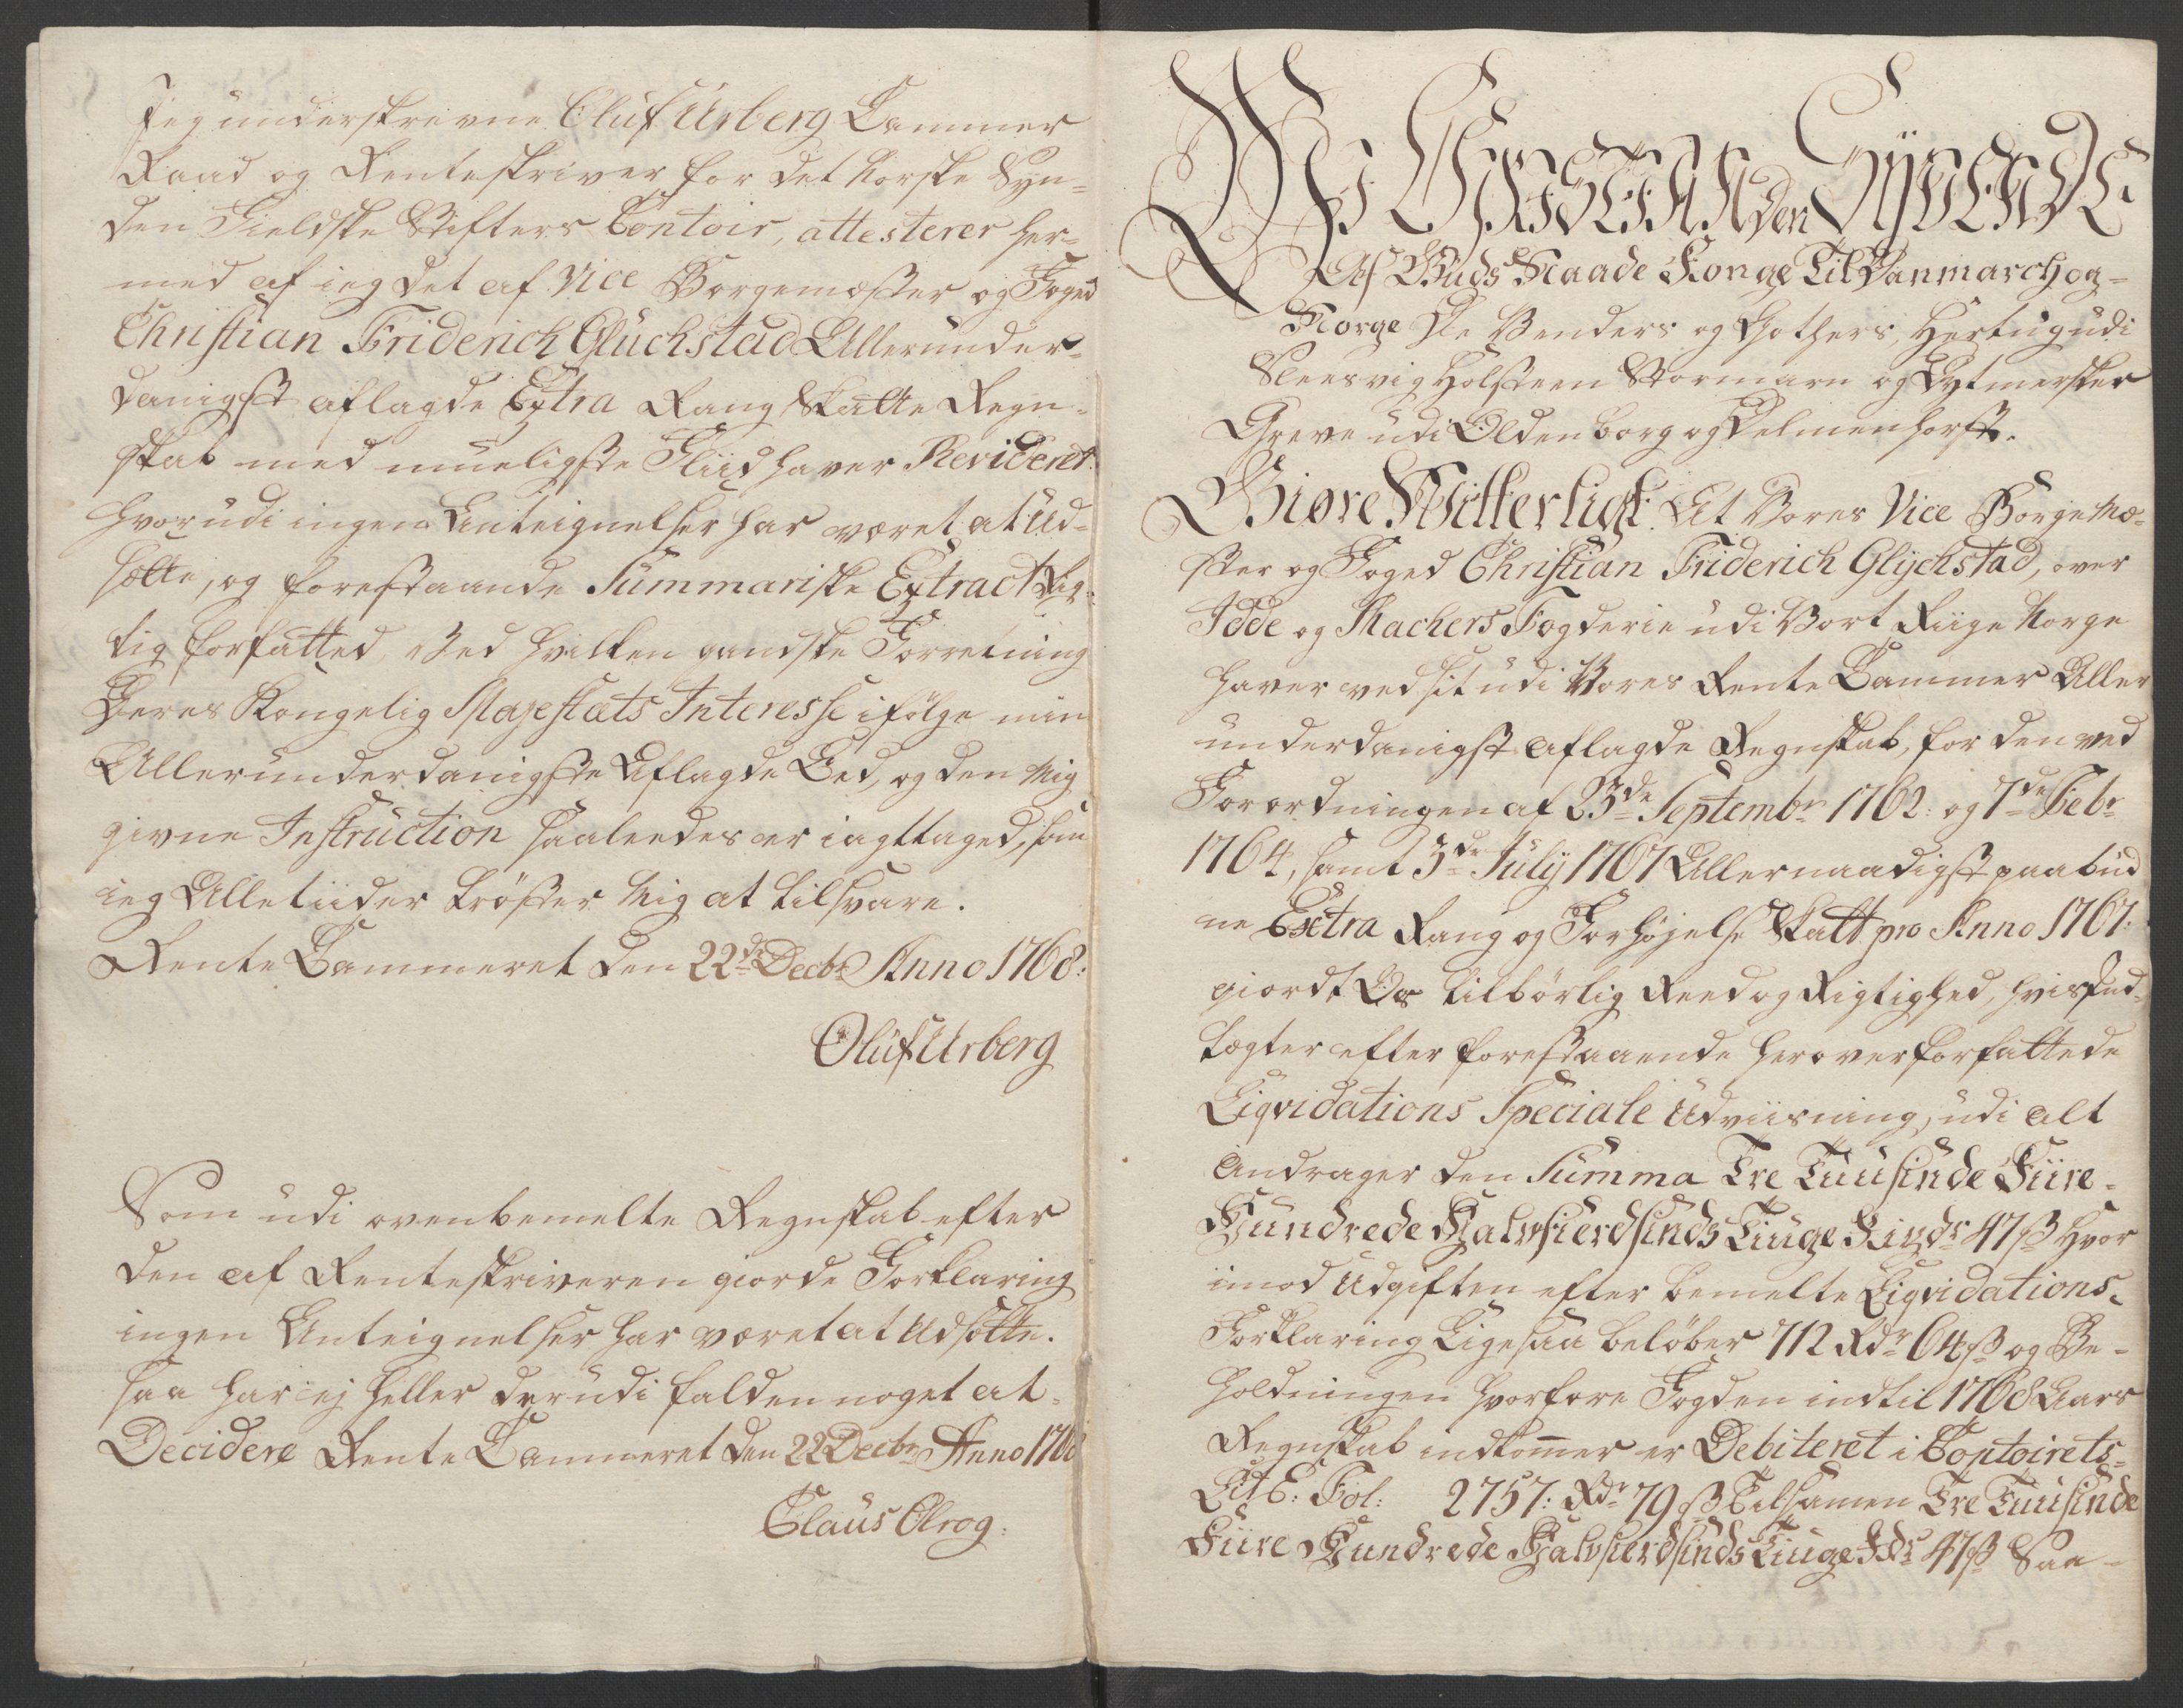 Jeg underskrevne Oluf Urberg Cammer
Raad og Renteskriver for det Norske Syn¬
den Fieldske Stifters Contoir, attesterer her¬
med at ieg det af Vice Borgemæster og Foged
Christian Friderich Glückstad Allerunder¬
danigst aflagde Extra Rang Skatte Regn¬
skab med mueligste Fliid haver Revideret.
hvorudi ingen Anteignelser har været at ud¬
sætte, og forestaaende Summariske Extract Rig¬
tig forfatted. Ved hvilken gandske Forretning
Deres Kongelig Majestæts Interesse ifölge min
Allerunderdanigste Aflagde Eed, og den Mig
givne Instruction saaleedes er iagttaged, som
ieg Alletiider tröster Mig at tilsvare.
Rente Cammeret den 22de Decbr Anno 1768:
Oluf Urberg
Som udi ovenbemelte Regnskab efter
den af Renteskriveren giorde Forklaring
ingen Anteignelser har været at udsætte.
saa har ej heller derudi falden noget at
Decidere Rente Cammeret den 22 Decbr Anno 1768
Claus Olrog.
Wi Christian den Syvende
Af Guds Naade Konge Til Danmarch og
Norge De Venders og Gothers, Hertug udi
Sleesvig Holsteen Stormarn og Dytmersken
Greve udi Oldenborg og Delmenhorst.
Giøre Witterligt. At Vores Vice Borgemæ¬
ster og Foged Christian Friderich Glychstad, over
Idde og Machers Fogderie udi Vort Riige Norge
haver ved sit udi Vores Rente Cammer Aller
underdanigst aflagde Regnskab, for den ved
Forordningen af 23de Septembr 1762: og 7de Febr
1764, samt 3de July 1767 Allernaadigst paabud
ne Extra Rang og Forhøjelse Skatt pro Anno 1767:
giordt Os tilbörlig Reed og Rigtighed, hvis Ind¬
tægter efter forestaaende herover forfattede
Liqvidations Speciale Udviisning, udi alt
andrager den Summa Tre Tuusinde Fiire¬
Hundrede Halvfierdsinds Tiuge Rixdr 47 ß Hvor
imod Udgiften efter bemelte Liqvidations¬
Forklaring Ligesaa belöber 712 Rdr 64 ß og Be¬
holdningen hvorfore Fogden indtil 1768 Aars
Regnskab indkommer er Debiteret i Contoirets
Litr E: Fol: 2757: Rdr 79 ß Tilsamen Tre Tuusinde
Fiire Hundrede Halvfierdsinds Tiuge Rdr 47 ß Saa